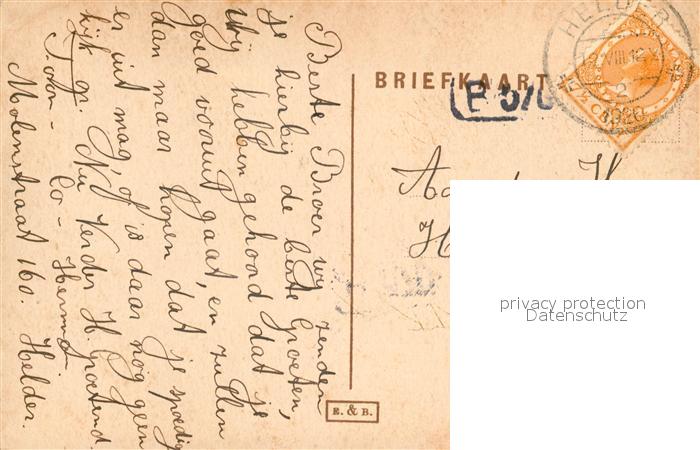 Beste Broer wy zenden
je hierbij de beste Groeten,
Wij hebben gehoord dat je
goed vooruit gaat, en zullen
dan maar hopen dat je spoedig
er uit mag, of is daar nog geen
kijk op. Nu Verder H. Groetend.
Toon - Co - Herman
Molenstraat 160. Helder.
BRIEFKAART
HELDER
VIII 12
2
1926
7½ C
P
E. & B.
Aan
H
privacy protection
Datenschutz